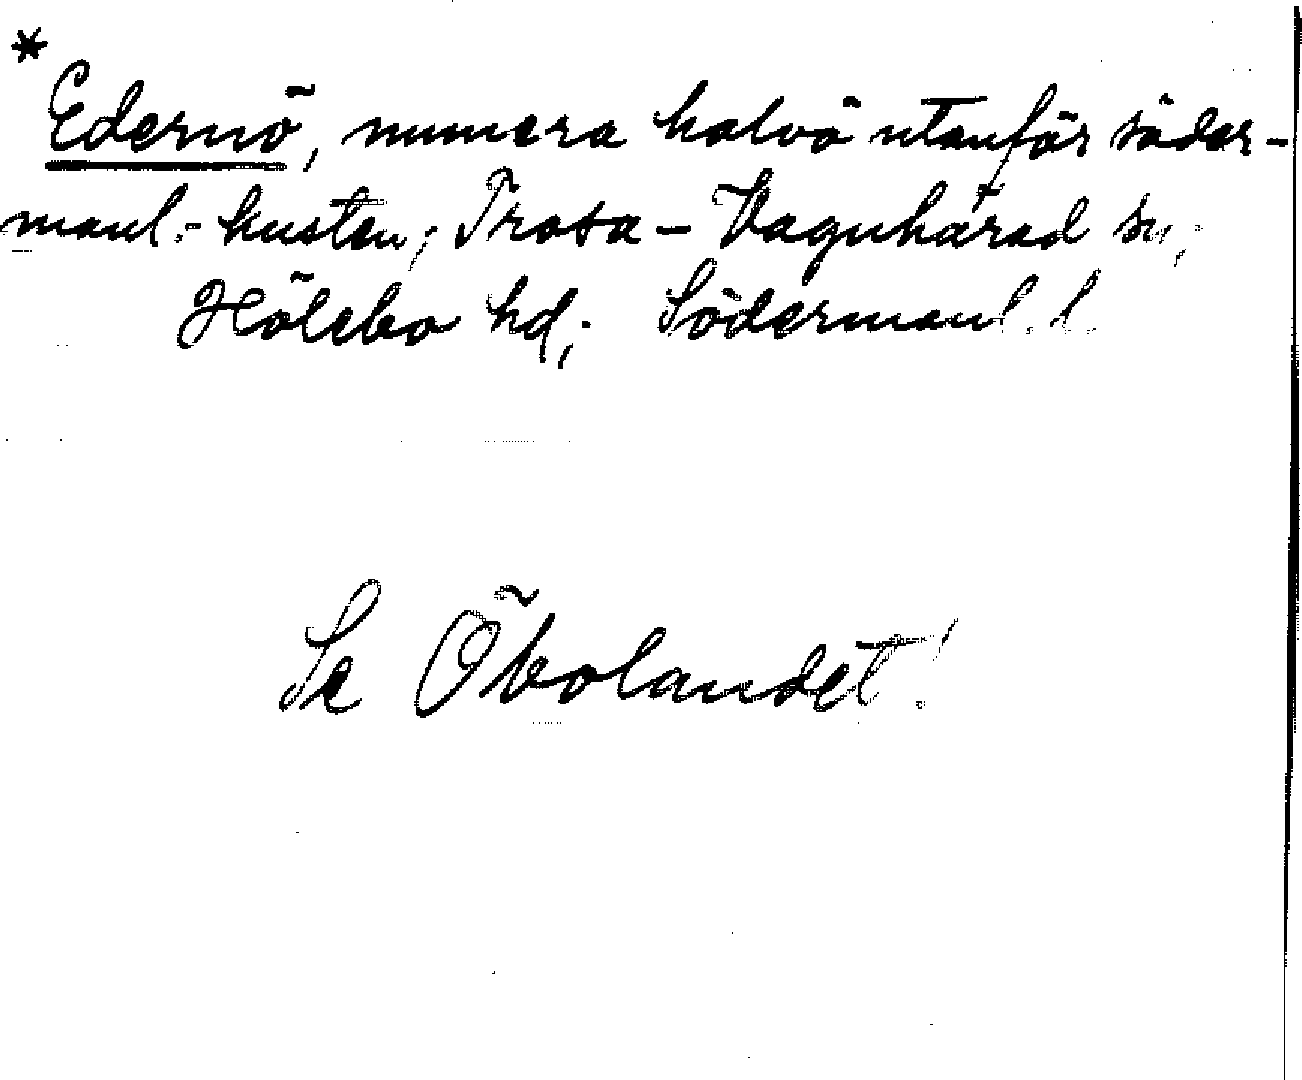 * Edernö, numera halvö utanför söder-
manl.-kusten, Trosa-Vagnhärad sn,
Hölebo hd, Södermanl. l.
Se Öbolandet!